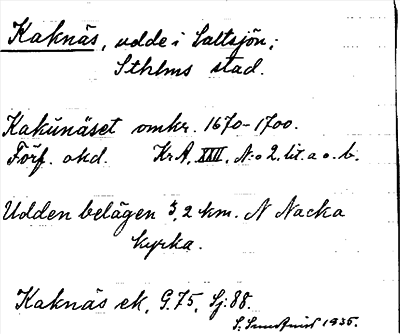 Kaknäs, udde i Saltsjön;
Sthlms stad.
Kakunäset omkr. 1670-1700.
Förf. okd. Kr A, XXII, N:o 2, lit. a o. b.
Udden belägen 3,2 km. N Nacka
kyrka.
Kaknäs ek, G.75, Sj:88.
S. Sundqvist 1935.